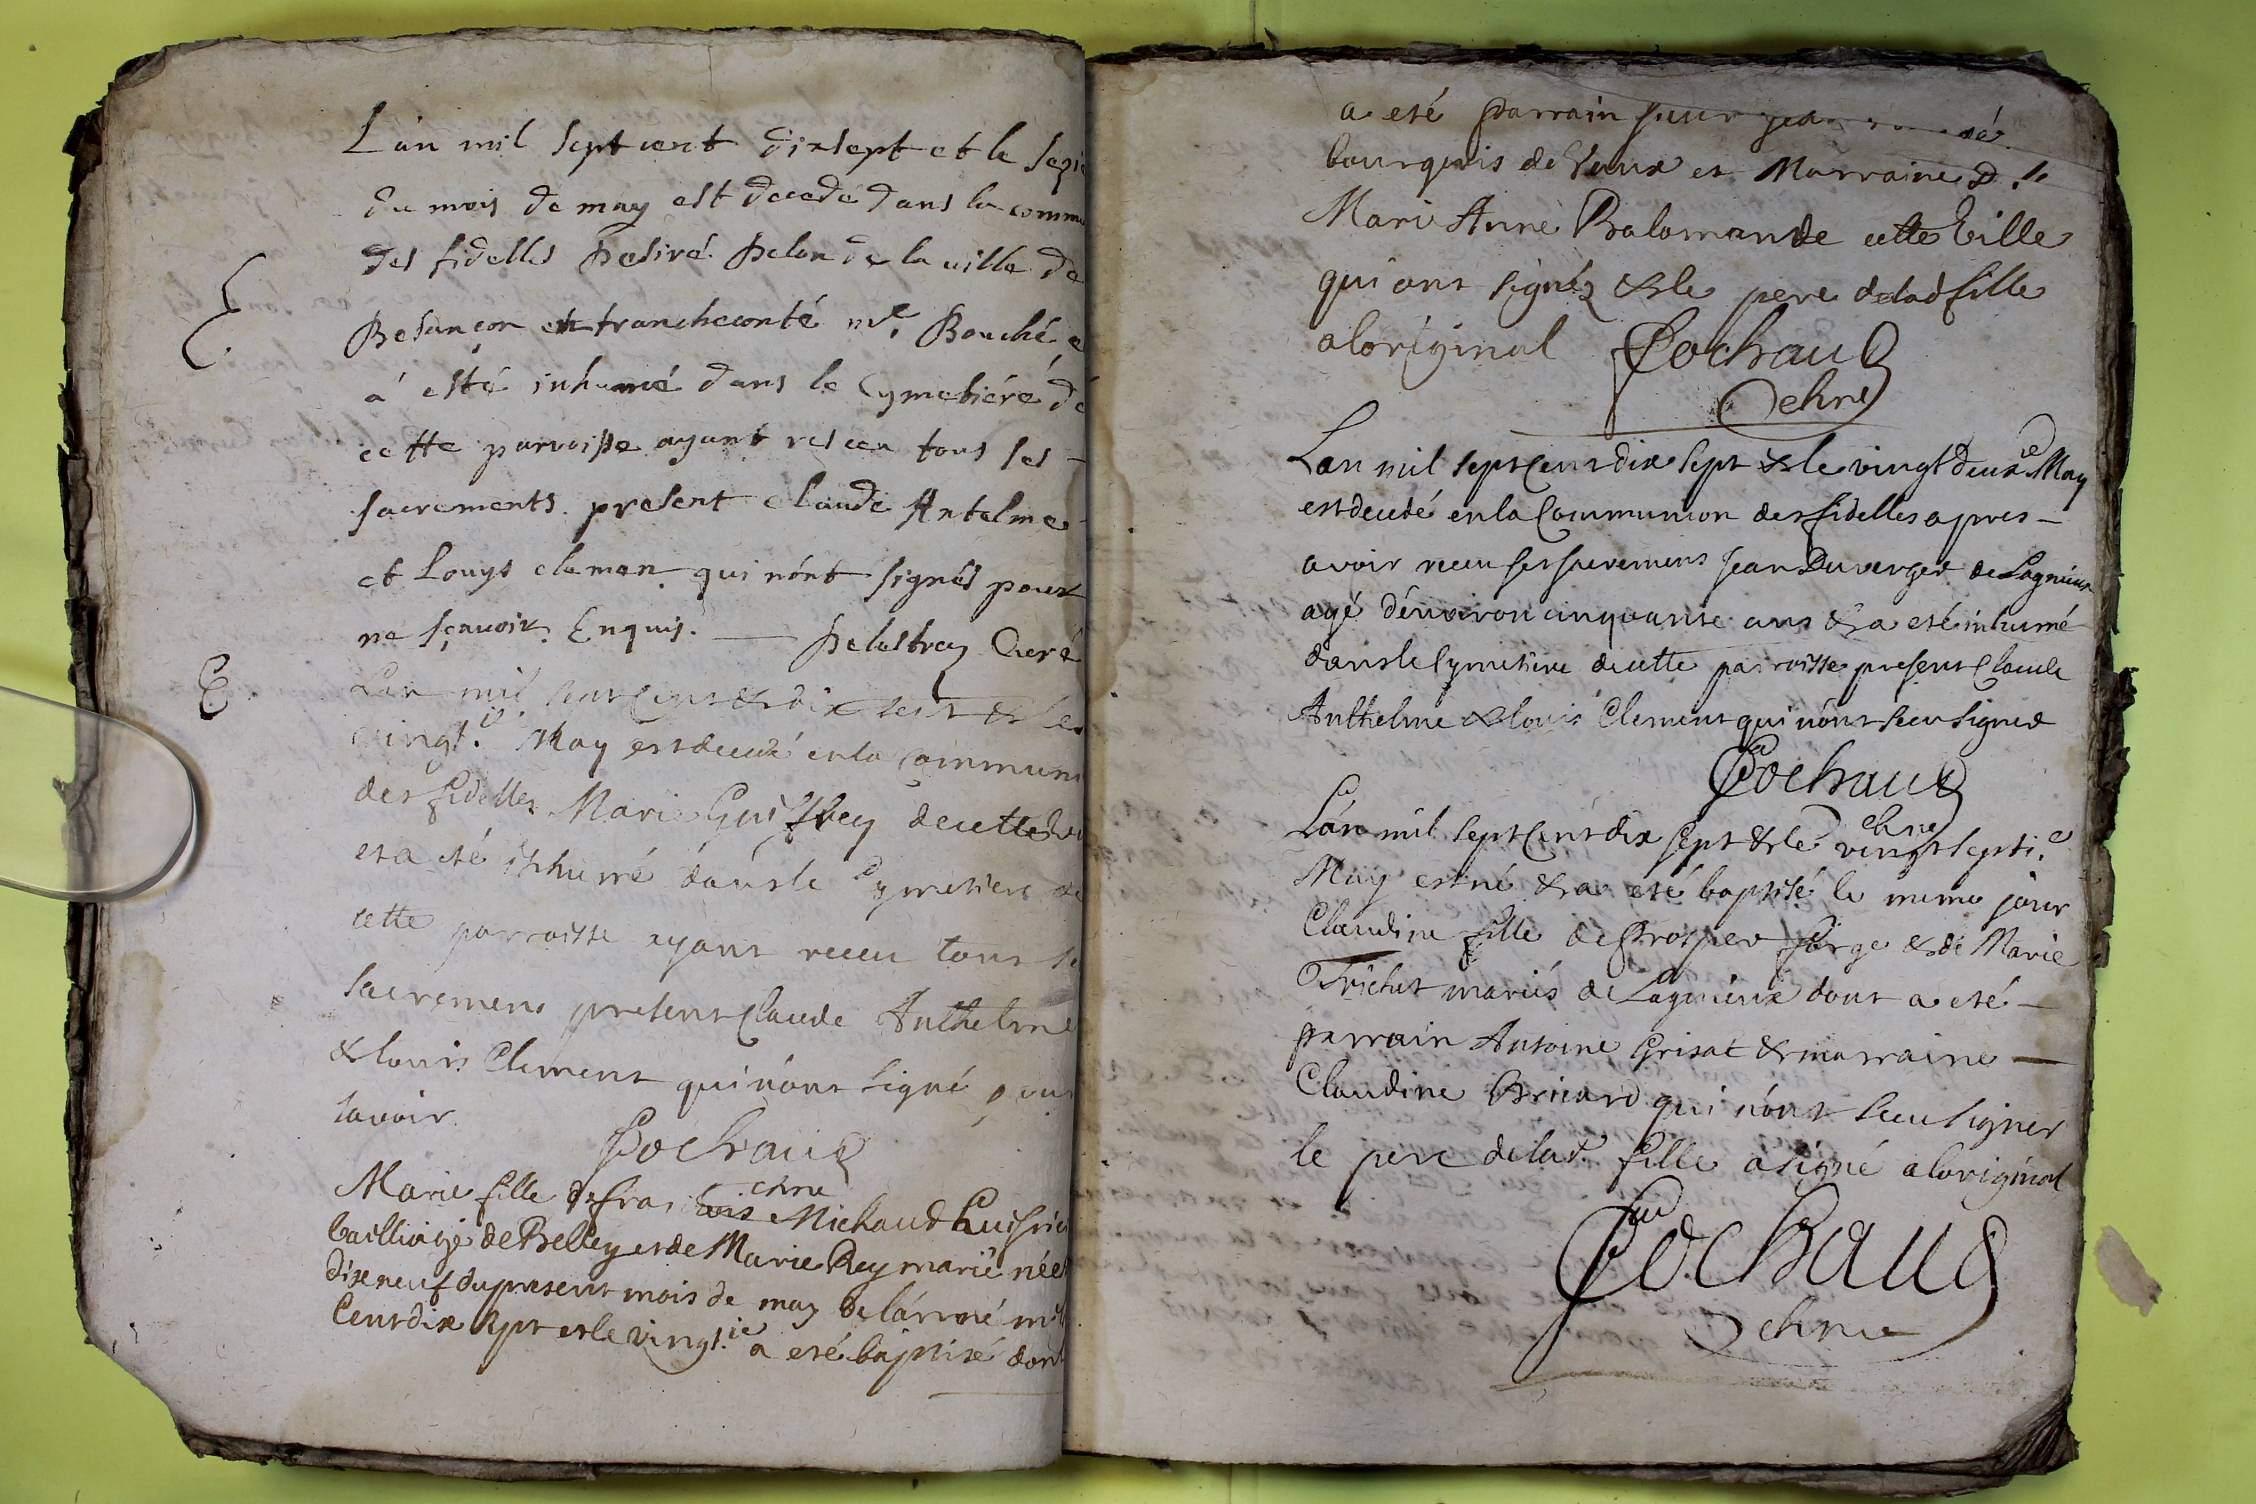 L'an mil sept cent dixsept et le sezie
du mois de may est decedé dans la commu
des fidelles Desiré Delon de la ville de
Besançon en francheconté me. Bouché, e
á esté inhumé dans le Cymetiéré dé
cette parroisse ayant receu tous ses —
sacrements. present claude Antelme
et Louys cleman qui n'ont signés pour
ne sçavoir. Enquis. — Delastrey Curé
E
E
Lan mil sept Cent & dix sept & le
vingt.e May est decedé en la Communi
des fidelles Marie Guiffrey de cette
et a eté inhumé dans le Cymetiere de
cette parroisse ayant receu tous s
sacremens present Claude Anthelme
& louis Clement qui n'ont signé pour
savoir.
Cochaud
chne
Marie fille de francois Michaud huissrie
bailliage de Belley et de Marie Rey marié née
dixneuf du present mois de may de l'anné m
Cent dix sept et le vingt.ie a eté baptisé dont
a eté parrain sieur
bourgeois de Vaux et Marraine D.le
Mari Anne Balomande cette ville
qui ont signéz & le pere delad fille
a loriginal Cochaud
chne
Lan mil sept Cent dix sept & le vingt deuxie May
est decedé en la Communion des fidelles apres —
avoir receu ses sacremens Jean Duverger de Lagnieux
agé d'environ cinquante ans & a eté inhumé
dans le Cymetiere de cette parroisse present Claude
Anthelme & louis Clement qui n'ont sceu signer
Cochaud
chne
L'an mil sept Cent dix sept & le vingt septi.e
May est né & a eté baptisé le mime jour
Claudine fille de Prosper forge & de Marie
Trichet mariés de Lagnieux dont a eté —
parrain Antoine Grisat & marraine —
Claudine Bricard qui n'ont sceu signer
le pere delad. fille a signé a loriginal
Cochaud
chne